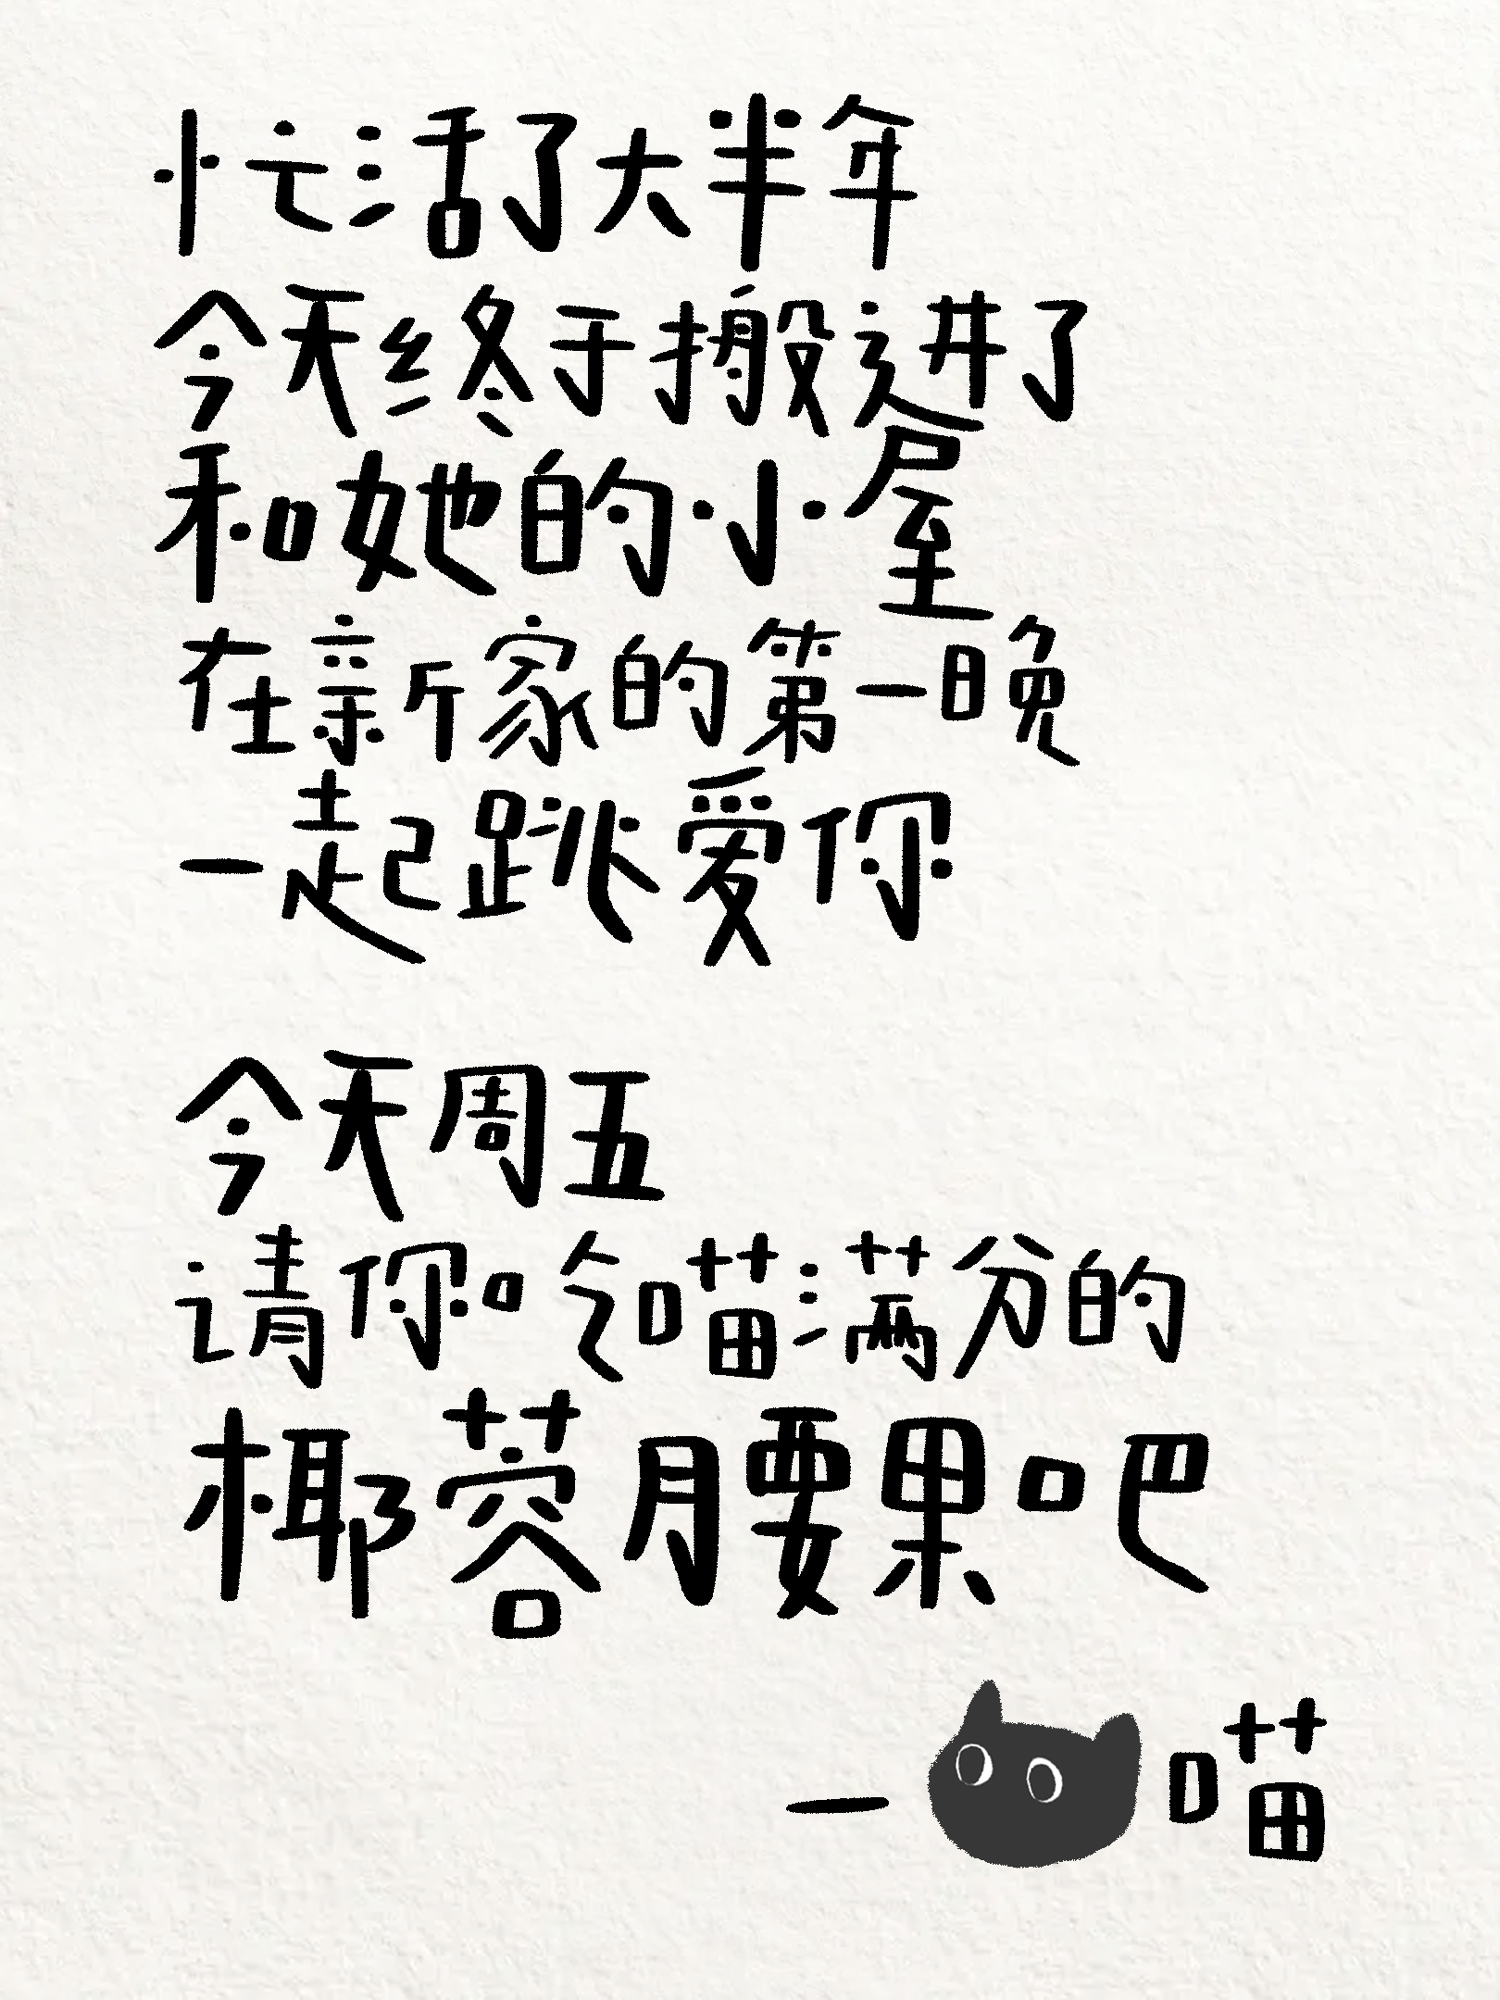 忙活了大半年
今天终于搬进了
和她的小屋
在新家的第一晚
一起跳爱你
今天周五
请你吃喵满分的
椰蓉腰果吧
—喵